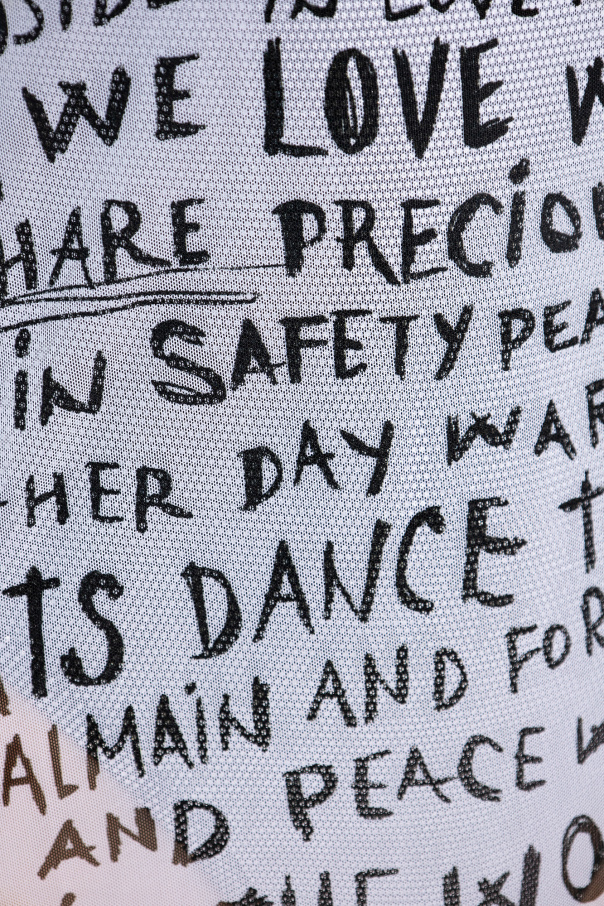 IN LOVE
WE LOVE
HARE PRECIOU
IN SAFETY PEA
HER DAY WAR
TS DANCE T
MAIN AND FOR
AND PEACE